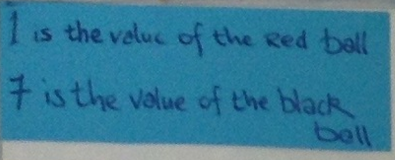 1 is the value of the Red ball
7 is the value of the black
ball